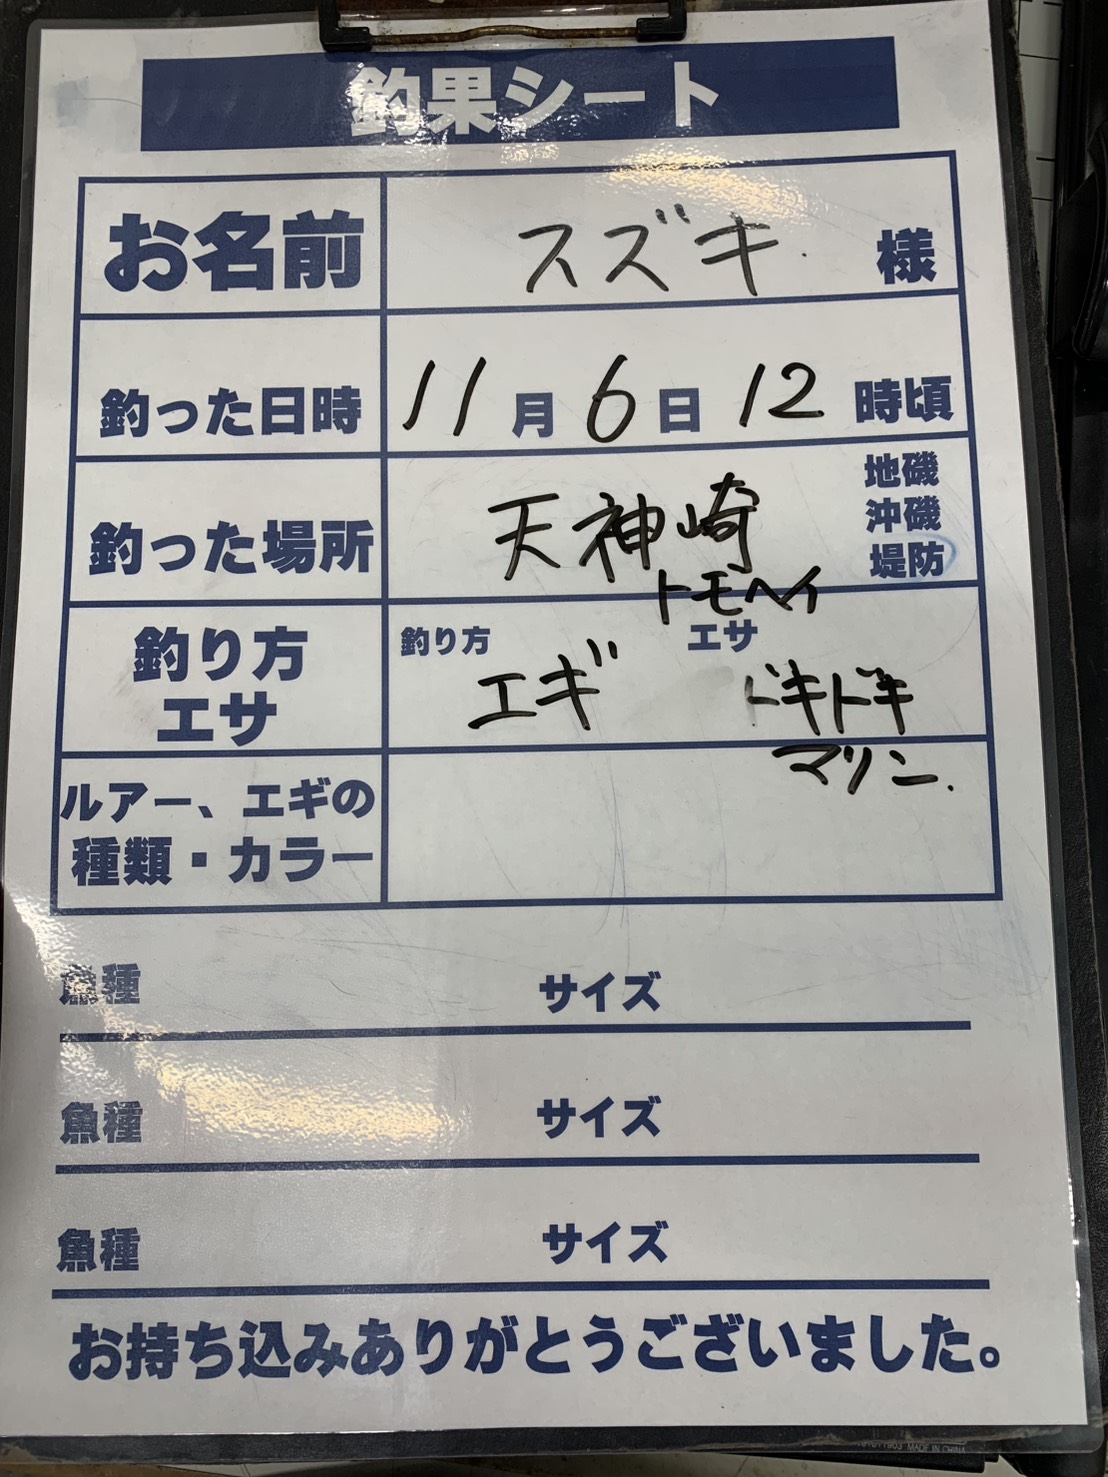 釣果シート
お名前 スズキ 様
釣った日時 11月6日 12時頃
釣った場所 天神崎
地磯
沖磯
堤防
トモヘイ
釣り方
エサ
釣り方 エギ
エサ ドキドキ
マリン.
ルアー、エギの
種類・カラー
魚種 サイズ
魚種 サイズ
魚種 サイズ
お持ち込みありがとうございました。
MADE IN CHINA